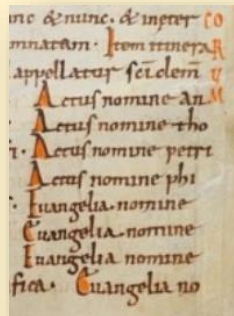 nc & nunc. & in eter CO
mnatam. Item itinera R
appellatur sci clem U
Actus nomine an M
Actus nomine tho
i. Actus nomine petri
Actus nomine phi
Euangelia nomine
Euangelia nomine
Euangelia nomine
fica. Euangelia no